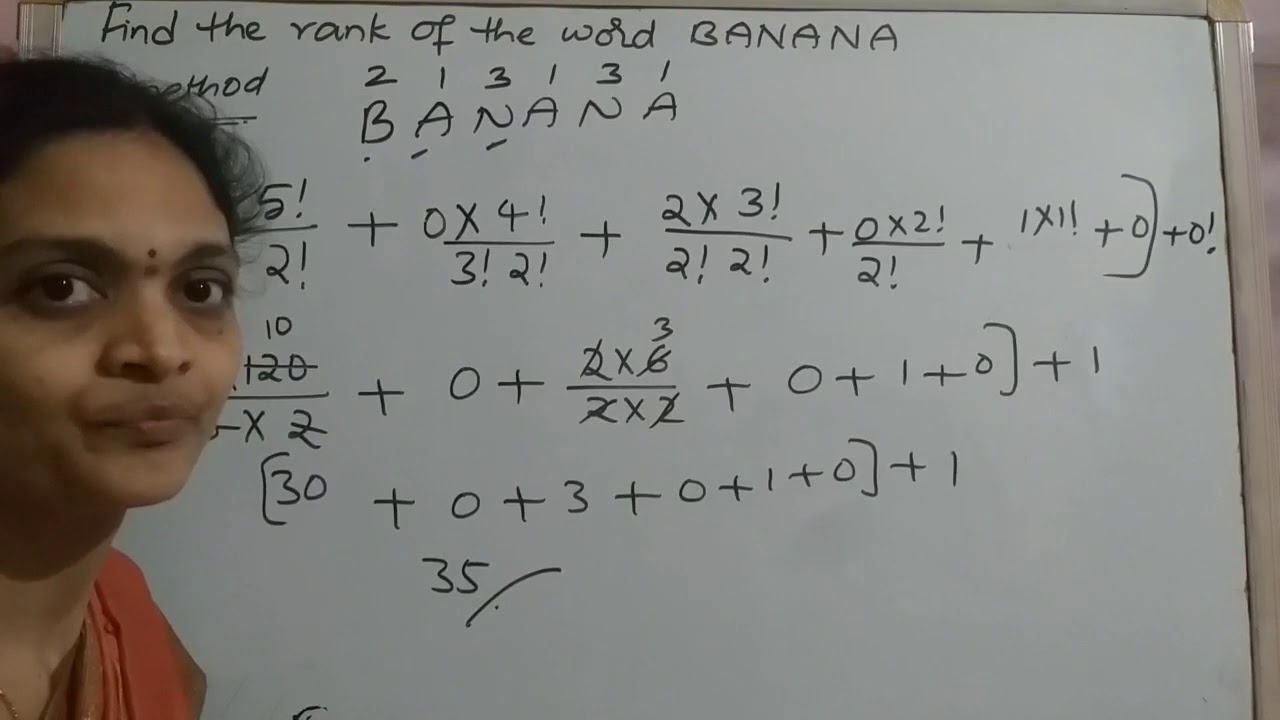 Find the rank of the word BANANA
method 2 1 3 1 3 1
B A N A N A
5!/2! + 0 X 4!/3! 2! + 2 X 3!/2! 2! + 0 X 2!/2! + 1 X 1! + 0] + 0!
10 3
120/X 2 + 0 + 2 X 6/2 X 2 + 0 + 1 + 0] + 1
[30 + 0 + 3 + 0 + 1 + 0] + 1
35